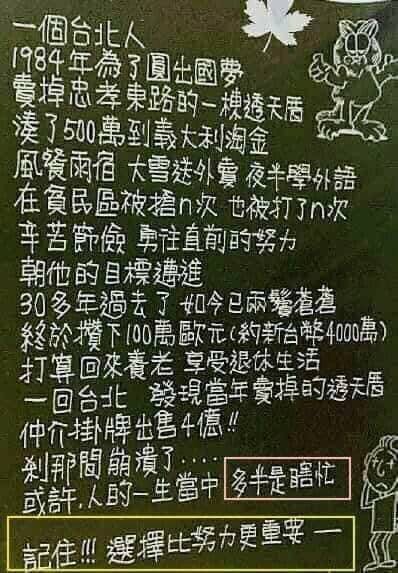 一個台北人
1984年為了圓出國夢
賣掉忠孝東路的一棟透天厝
湊了500萬到義大利淘金
風餐雨宿 大雪送外賣 夜半學外語
在貧民區被搶n次 也被打了n次
辛苦節儉 勇往直前的努力
朝他的目標邁進
30多年過去了 如今已兩鬢蒼蒼
終於攢下100萬歐元(約新台幣4000萬)
打算回來養老 享受退休生活
一回台北 發現當年賣掉的透天厝
仲介掛牌出售4億!!
剎那間崩潰了....
或許.人的一生當中 多半是瞎忙
記住!!! 選擇比努力更重要 一